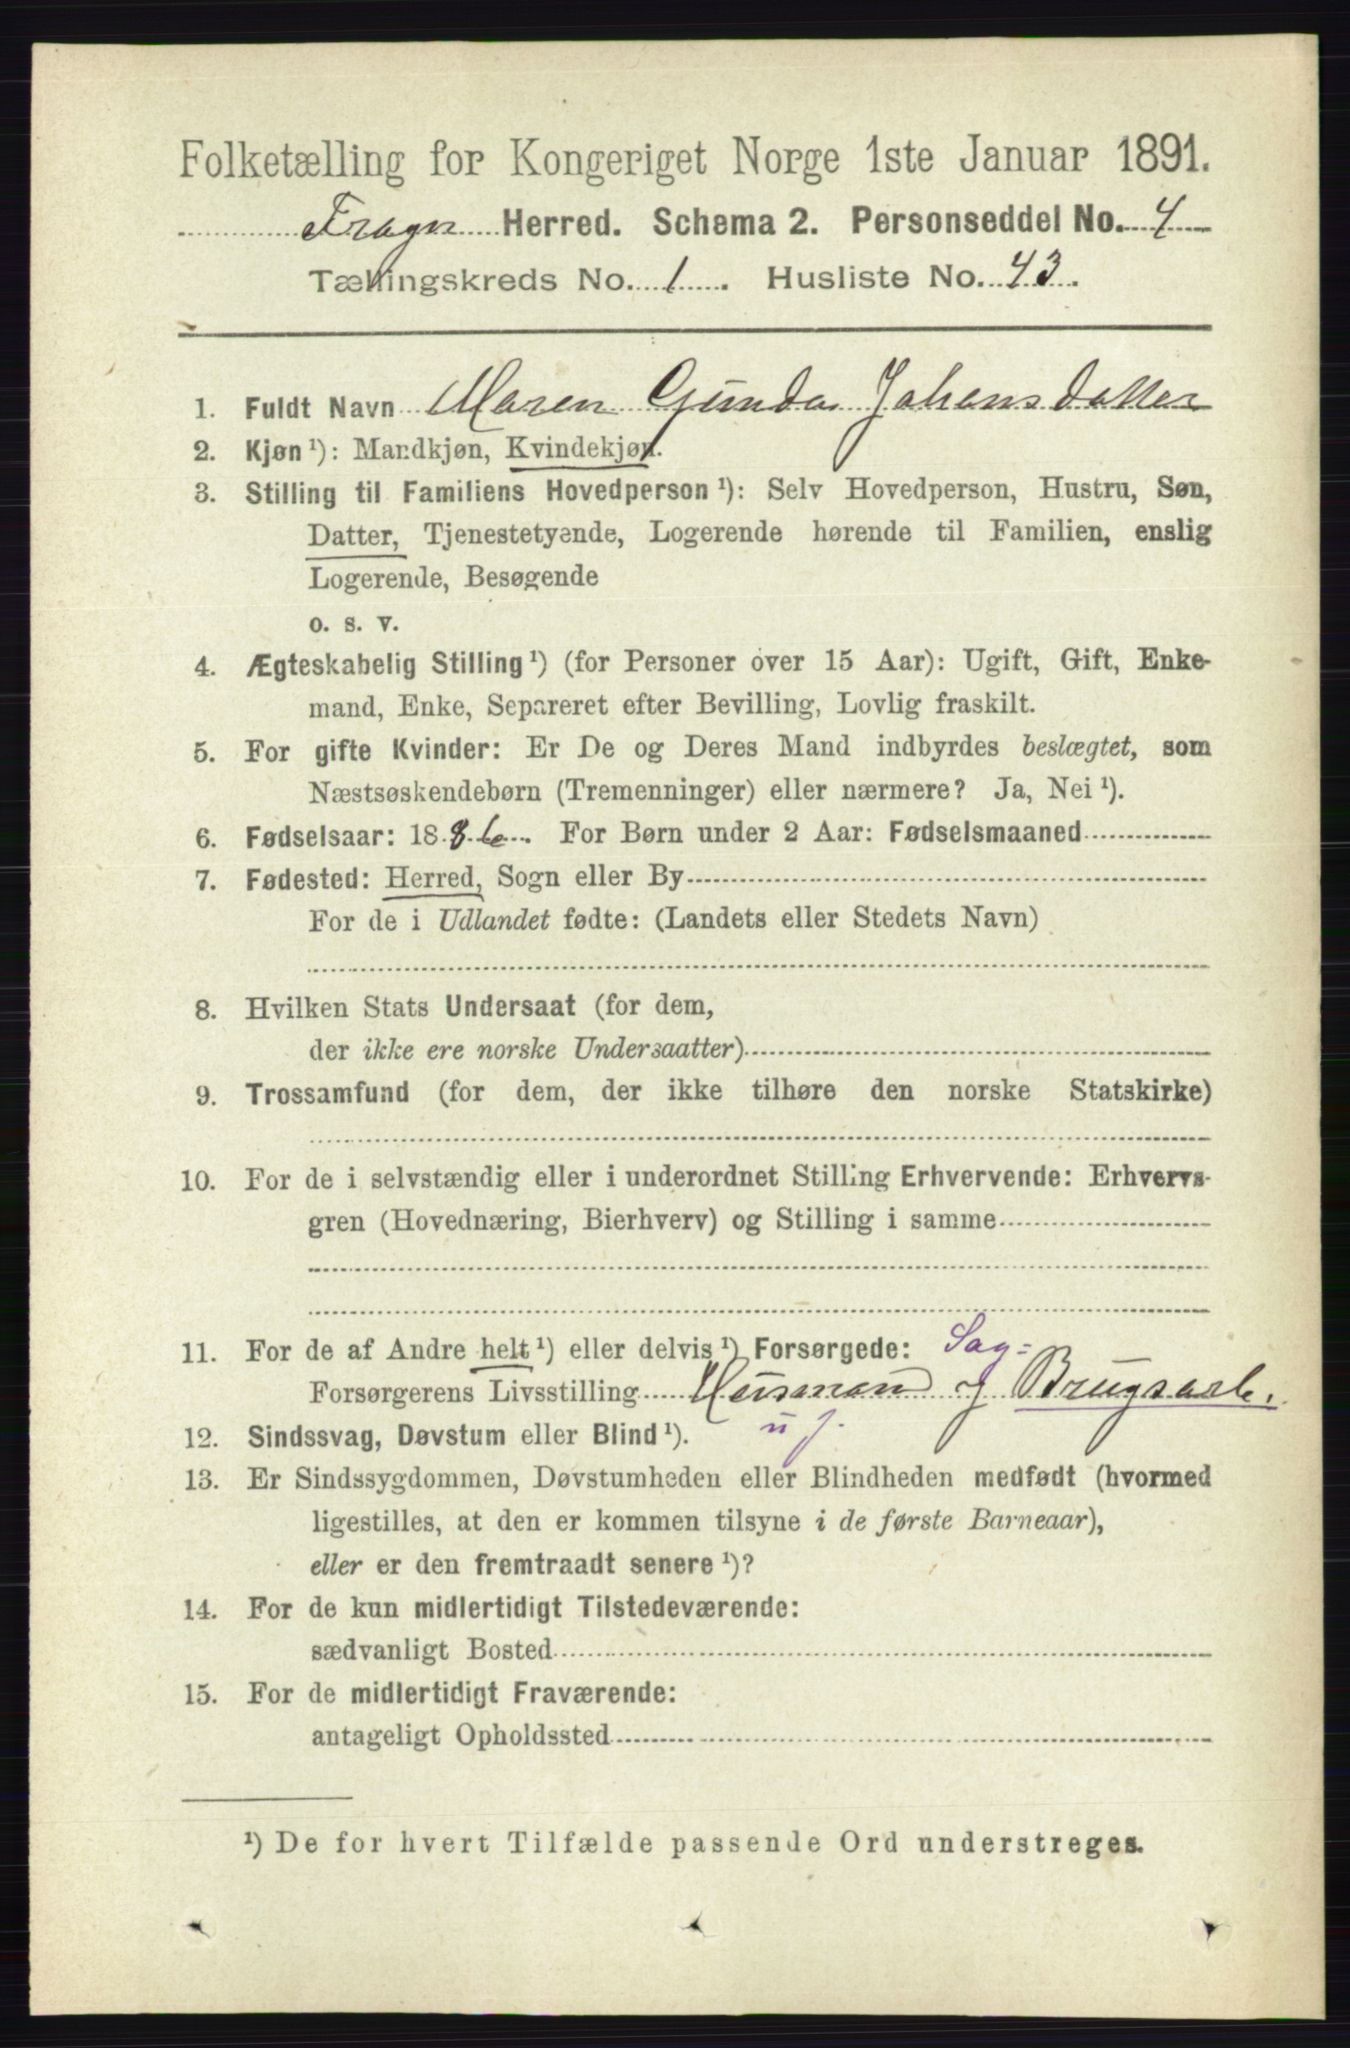 Folketælling for Kongeriget Norge 1ste Januar 1891.
Frogn Herred. Schema 2. Personseddel No. 4
Tællingskreds No. 1. Husliste No. 43.
1. Fuldt Navn Maren Gunda Johansdatter
2. Kjøn ¹): Mandkjøn, Kvindekjøn.
3. Stilling til Familiens Hovedperson ¹): Selv Hovedperson, Hustru, Søn,
Datter, Tjenestetyende, Logerende hørende til Familien, enslig
Logerende, Besøgende
o. s. v.
4. Ægteskabelig Stilling ¹) (for Personer over 15 Aar): Ugift, Gift, Enke-
mand, Enke, Separeret efter Bevilling, Lovlig fraskilt.
5. For gifte Kvinder: Er De og Deres Mand indbyrdes beslægtet, som
Næstsøskendebørn (Tremenninger) eller nærmere? Ja, Nei ¹).
6. Fødselsaar: 1886. For Børn under 2 Aar: Fødselsmaaned
7. Fødested: Herred, Sogn eller By
For de i Udlandet fødte: (Landets eller Stedets Navn)
8. Hvilken Stats Undersaat (for dem,
der ikke ere norske Undersaatter)
9. Trossamfund (for dem, der ikke tilhøre den norske Statskirke)
10. For de i selvstændig eller i underordnet Stilling Erhvervende: Erhvervs-
gren (Hovednæring, Bierhverv) og Stilling i samme
11. For de af Andre helt ¹) eller delvis ¹) Forsørgede: Sag=
Forsørgerens Livsstilling Husmand og Brugsarb.
12. Sindssvag, Døvstum eller Blind ¹). u j.
13. Er Sindssygdommen, Døvstumheden eller Blindheden medfødt (hvormed
ligestilles, at den er kommen tilsyne i de første Barneaar),
eller er den fremtraadt senere ¹)?
14. For de kun midlertidigt Tilstedeværende:
sædvanligt Bosted
15. For de midlertidigt Fraværende:
antageligt Opholdssted
¹) De for hvert Tilfælde passende Ord understreges.